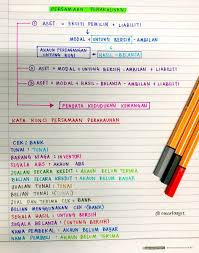 PERSAMAAN PERAKAUNAN
① ASET = EKUITI PEMILIK + LIABILITI
MODAL + UNTUNG BERSIH - AMBILAN
AKAUN PERDAGANGAN UNTUNG RUGI
HASIL - BELANJA
② ASET = MODAL + UNTUNG BERSIH - AMBILAN + LIABILITI
③ ASET = MODAL + HASIL - BELANJA - AMBILAN + LIABILITI
PENYATA KEDUDUKAN KEWANGAN
KATA KUNCI PERSAMAAN PERAKAUNAN
CEK : BANK
TUNAI : TUNAI
BARANG NIAGA : INVENTORI
SEGALA ABT : AKAUN ABT
JUALAN SECARA KREDIT : AKAUN BELUM TERIMA
BELIAN SECARA KREDIT : AKAUN BELUM BAYAR
JUALAN TUNAI : TUNAI
BELIAN TUNAI : TUNAI
JUAL DAN TERIMA CEK : BANK
BELIAN MENGGUNAKAN CEK : BANK
SEGALA HASIL : UNTUNG BERSIH
SEGALA BELANJA : UNTUNG BERSIH
NAMA PEMBEKAL : AKAUN BELUM BAYAR
NAMA PEMBELI : AKAUN BELUM TERIMA